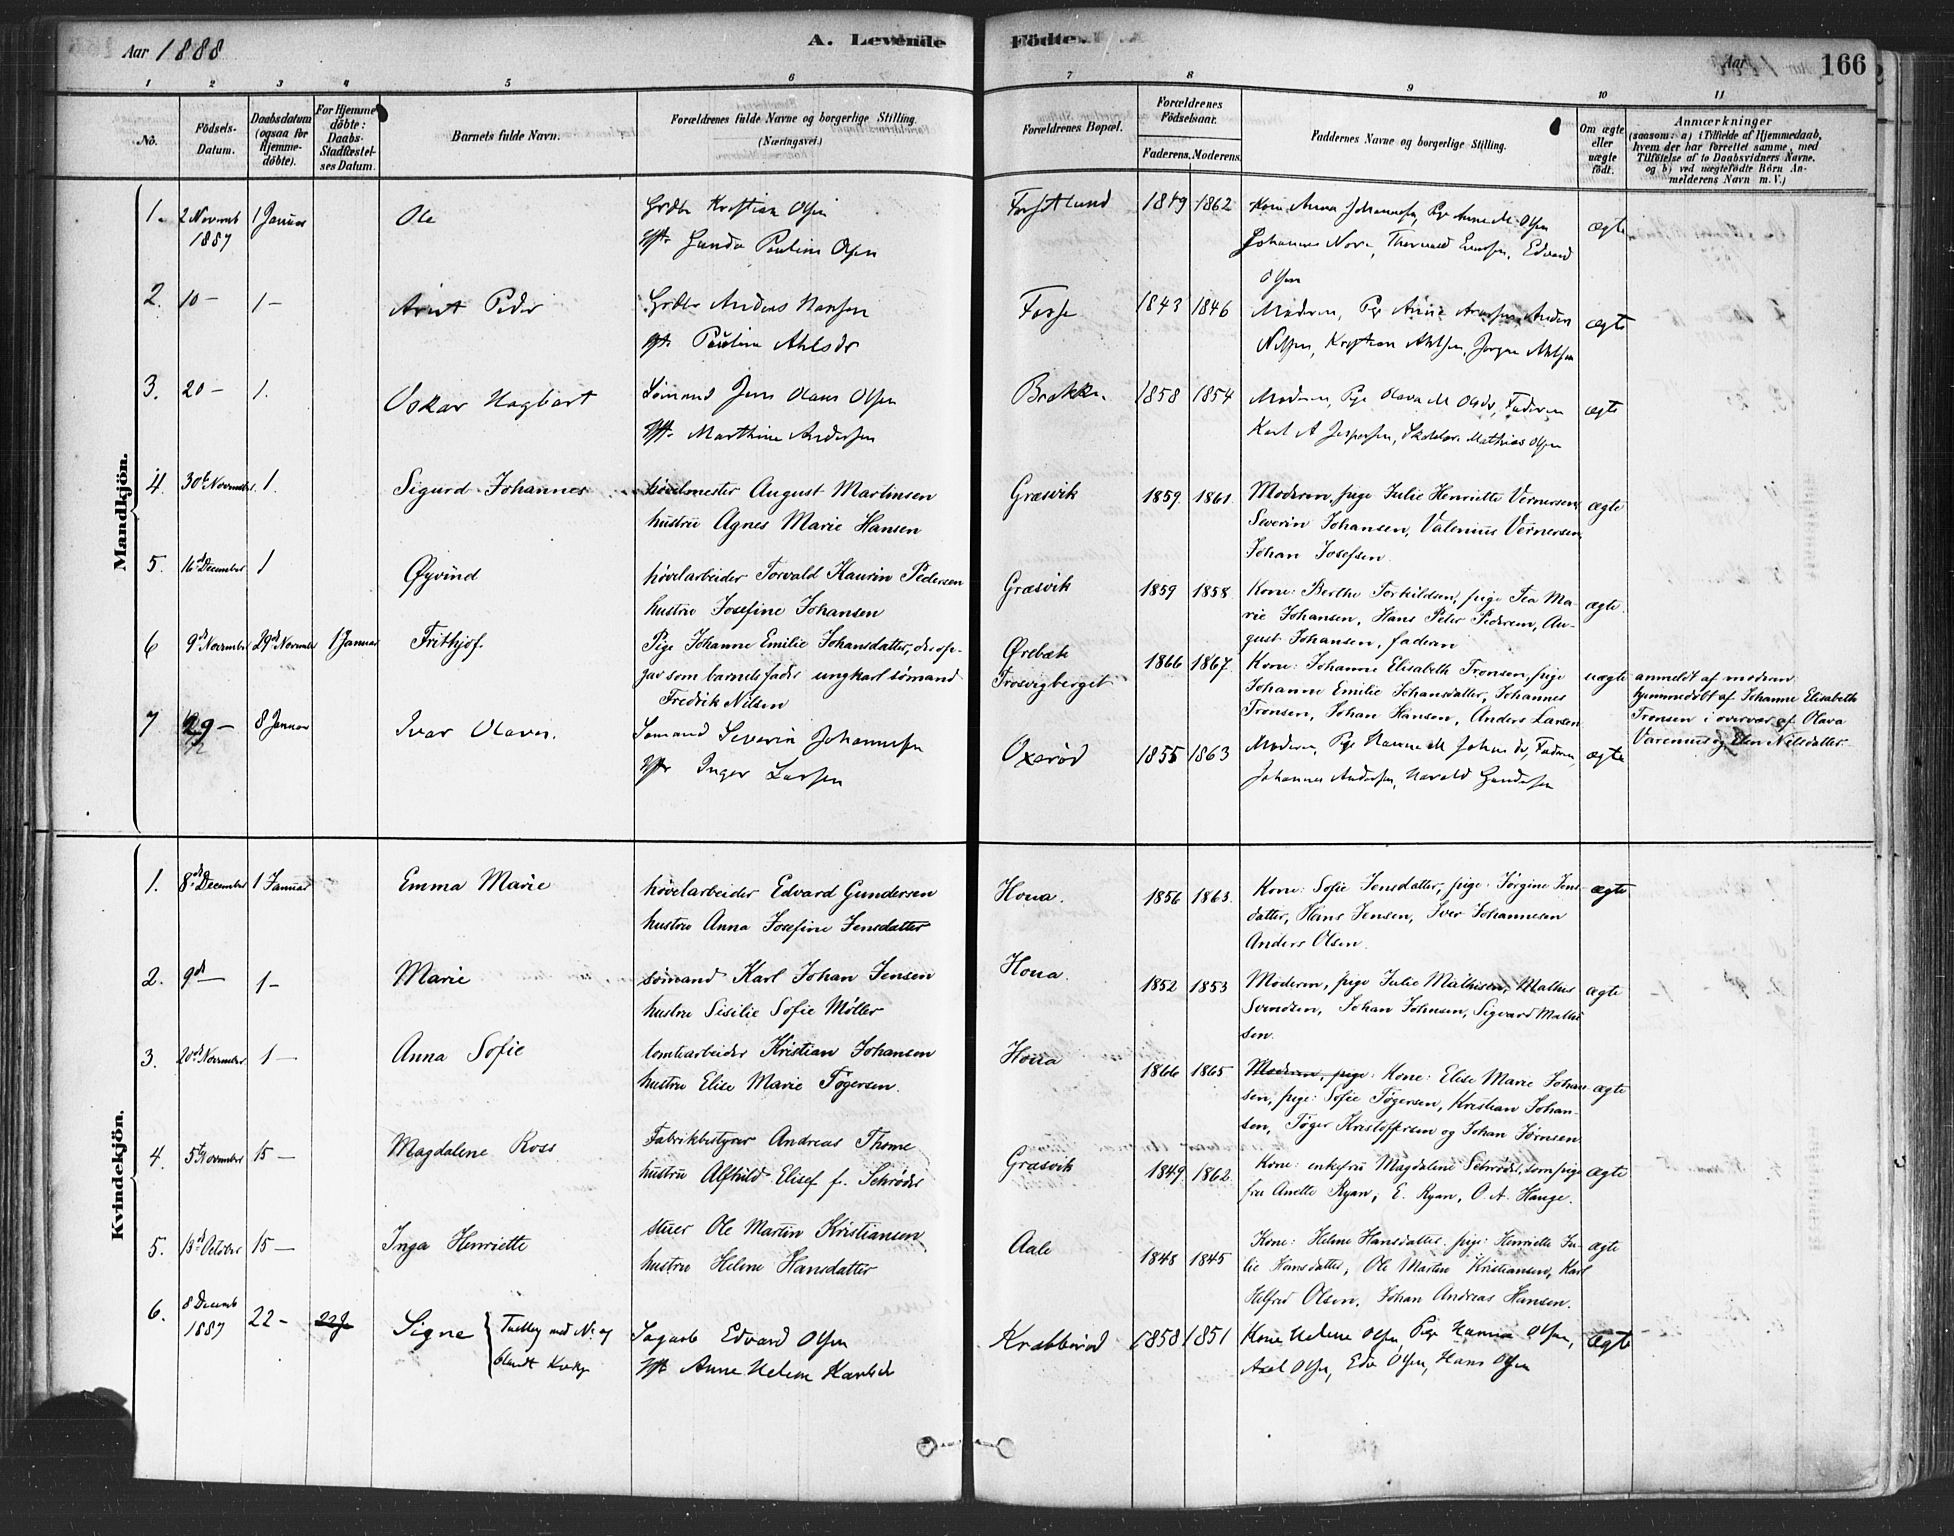 Aar 1888
A. Levende
Födte.
Aar
166
1 2 3 4 5 6 7 8 9 10 11
No.
Födsels-Datum.
Daabsdatum (ogsaa for Hjemme-döbte).
For Hjemme-döbte: Daabs-Stadfæstel-ses Datum.
Barnets fulde Navn.
Forældrenes fulde Navne og borgerlige Stilling.
(Næringsvei.)
Forældrenes Bopæl.
Forældrenes Födselsaar.
Faderens. Moderens.
Faddernes Navne og borgerlige Stilling.
Om ægte eller uægte födt.
Anmærkninger
(saasom: a) i Tilfælde af Hjemmedaab,
hvem der har forrettet samme, med
Tilföielse af to Daabsvidners Navne,
og b) ved uægtefödte Börn An-
melderens Navn m. V.)
Mandkjön.
1. 2 Novemb 1887 1 Januar Ole
Kristian Olsen
Gunda Pauline Olsen
1849 1862
Kone Anna Johannesen, Pige Anne M. Olsen
Johannes Nore, Edvard
Olsen
ægte
2. 10 – 1 – Peder
Anders Hansen
Pauline Ahlsdr
Fosse
1843 1846
Moderen, Pige
Nilsen, Kristian
ægte
3. 20 – 1. Oskar Hagbart
Sömand Jens Olaus Olsen
Marthine Andersen
Brække
1858 1854
Moderen, Pige Olava M Olsdr, Faderen
Karl A Jespersen, Mathias Olsen
ægte
4. 30te November 1. Sigurd Johannes
høvelmester August Martinsen
hustru Agnes Marie Hansen
Græsvik
1859. 1861.
Moderen, pige Julie Henriette Vernersen,
Severin Johansen, Valenius Vernersen,
Johan Josefsen.
ægte
5. 16de December 1 Øyvind
høvelarbeider Torvald Kaurin Pedersen
hustru Josefine Johansen
Græsvik
1859 1858.
Kone: Berthe Torkildsen, pige Tea Ma-
rie Johansen, Hans Peter Pedersen, Au-
gust Johansen, faderen
ægte.
6 9de November 29de November 1 Januar Frithjof.
Pige Johanne Emilie Johansdatter, der op-
gav som barnets fader ungkarl sømand
Fredrik Nilsen
Ørebæk
Trosvigberget
1866 1867.
Kone: Johanne Elisabeth Tronsen, pige
Johanne Emilie Johansdatter, Johannes
Tronsen, Johan Hansen, Anders Larsen
uægte
anmeldt af moderen
hjemmedøbt af Johanne Elisabeth
Tronsen i overvær af Olava
Varenius og Elen Nilsdatter.
7 29 – 8 Januar Ivar Olaves.
Sømand Severin Johannesen
Inger Larsen
Oxerød
1855 1863
Moderen, Pige Hanne M Johansdr, Faderen,
Johannes Andersen, Harald Gundersen
ægte
Kvindekjön.
1. 8de December 1 Januar Emma Marie
høvelarbeider Edvard Gundersen
hustru Anna Josefine Jensdatter
Houa.
1856 1863.
Kone: Sofie Jensdatter, pige: Jørgine Jens-
datter, Hans Jensen, Iver Johannesen
Anders Olsen.
ægte
2. 9de – 1 – Marie
sømand Karl Johan Jensen
hustru Sisilie Sofie Møller
Houa.
1852 1853
Moderen, pige Julie Mathisen, Mathis
Svendsen, Johan Johnsen, Sigvard Mathi-
sen.
ægte
3. 20de November 1 – Anna Sofie
tomtearbeider Kristian Johansen
hustru Elise Marie Tøgersen.
Houa
1866 1865
Moderen, pige: Kone: Elise Marie Johan-
sen, pige: Sofie Tøgersen, Kristian Johan-
sen, Tøger Kristoffersen og Johan Jørnsen
ægte
4. 5te November 15 – Magdalene Ross
Fabrikbestyrer Andreas Thome
hustru Alfhild Elisef f. Schrøder
Græsvik
1849 1862.
Kone: enkefru Magdalene Schrøder, som pige
fru Anette Ryan, E. Ryan, O. A. Hauge.
ægte
5. 13de October 15 – Inga Henriette
stuer Ole Martin Kristiansen
hustru Helene Hansdatter
Aale
1848 1845
Kone: Helene Hansdatter. pige: Henriette Ju-
lie Hansdatter, Ole Martin Kristiansen, Karl
Helfred Olsen, Johan Andreas Hansen.
ægte
6. 8 Decemb 1887 22 – Signe
Tvilling med No 7
Edvard Olsen
Anne Helene Karlsdr
Krabberød
1858 1851
Kone Helene Olsen, Pige Hanna Olsen,
Axel Olsen, Edv Olsen, Hans Olsen
Ægte